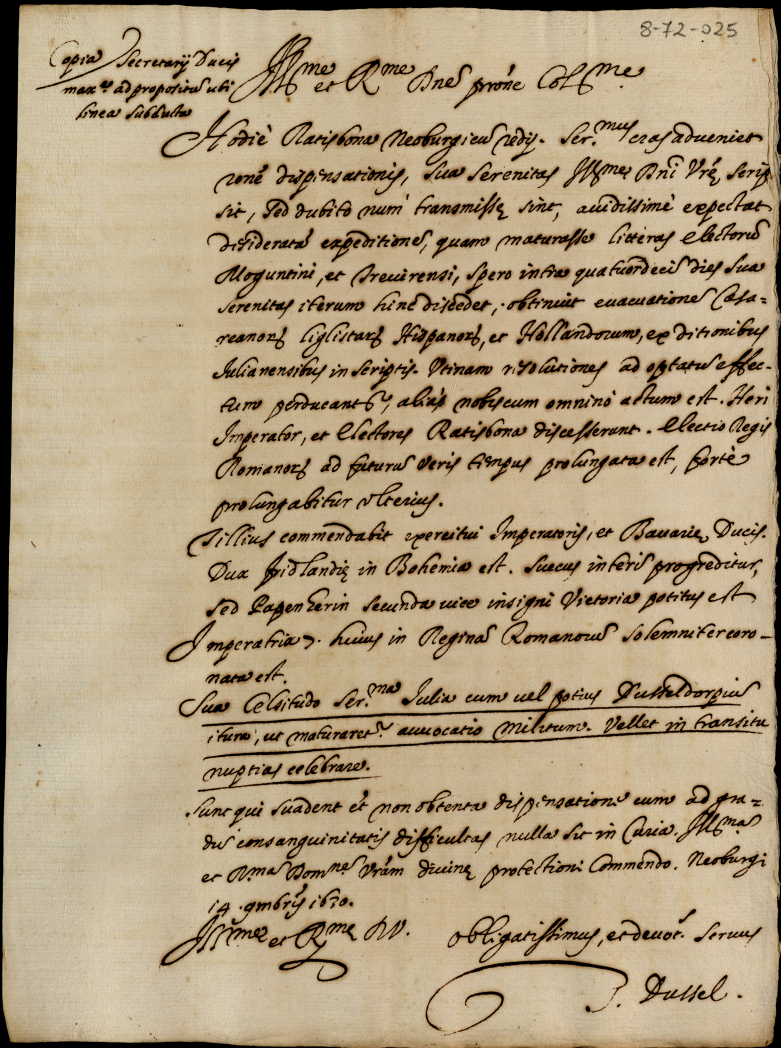 8-72-025
Copia Secretarij Ducis
max.e ad propositū ubi
linea subducta
Illme et Rme Dne prōne Colme
Hodie Ratisbona Neoburgicū redij. Ser.mus cras adveniet
rone dispensationis, sua serenitas Illmae Dni Vrē scrip
sit, sed dubito num transmissę sint, avidissime expectat
desideratā expeditionē, quam maturasse litteras Electorū
Moguntini, et Trevirensi, spero intra quatuordecī dies sua
serenitas iterum hinc discedet, obtinuit evacuationē Cæsa=
reanorū ligistarū Hispanorū, et Hollandorum, ex ditionibus
Julianensibus in scriptis. Utinam resolutiones ad optatū effec-
tum perducantr, alias nobiscum omnino actum est. Heri
Imperator, et Electores Ratisbona discesserunt. Electio Regis
Romanorū ad futurū veris tempus prolungata est, forte
prolungabitur ulterius.
Tillius commendabit exercitui Imperatoris, et Bavarię Ducis.
Dux fridlandię in Bohemia est. Suecus interī progreditur,
sed Papenheim secunda vice insigni Victoria potitus est
Imperatrix 7. huius in Reginā Romanorū solemniter coro-
nata est.
Sua Celsitudo Ser.ma Julia cum vel potius Dusseldorpiū
itura, ut maturaretr avvocatio militum. Vellet in transitu
nuptias celebrare.
Sunt qui suadent et non obtenta dispensatione cum ad gra=
dū consanguinitatis difficultas nulla sit in Curia. Illmā
et Rmā Domnē Vrām divinę protectioni Commendo. Neoburgi
14. 9mbris 1630.
Illmae et Rmae DV. obligatissimus, et devot. servus
J. Dussel.